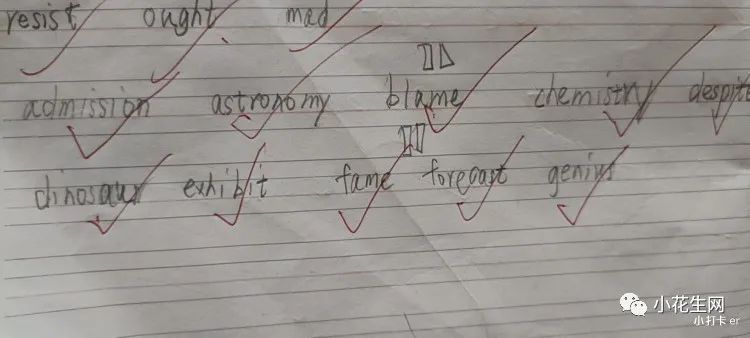 resist ought mad
admission astronomy blame chemistry despite
dinosaur exhibit fame forecast genius
小花生网
小打卡 er